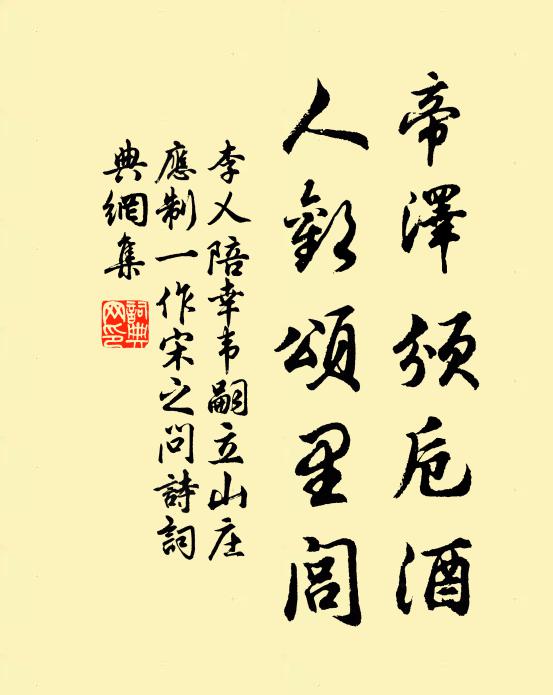 帝澤頒卮酒
人歡頌里閭
李乂陪幸韦嗣立山庄
應制一作宋之問詩詞
典網集
詞典
网印